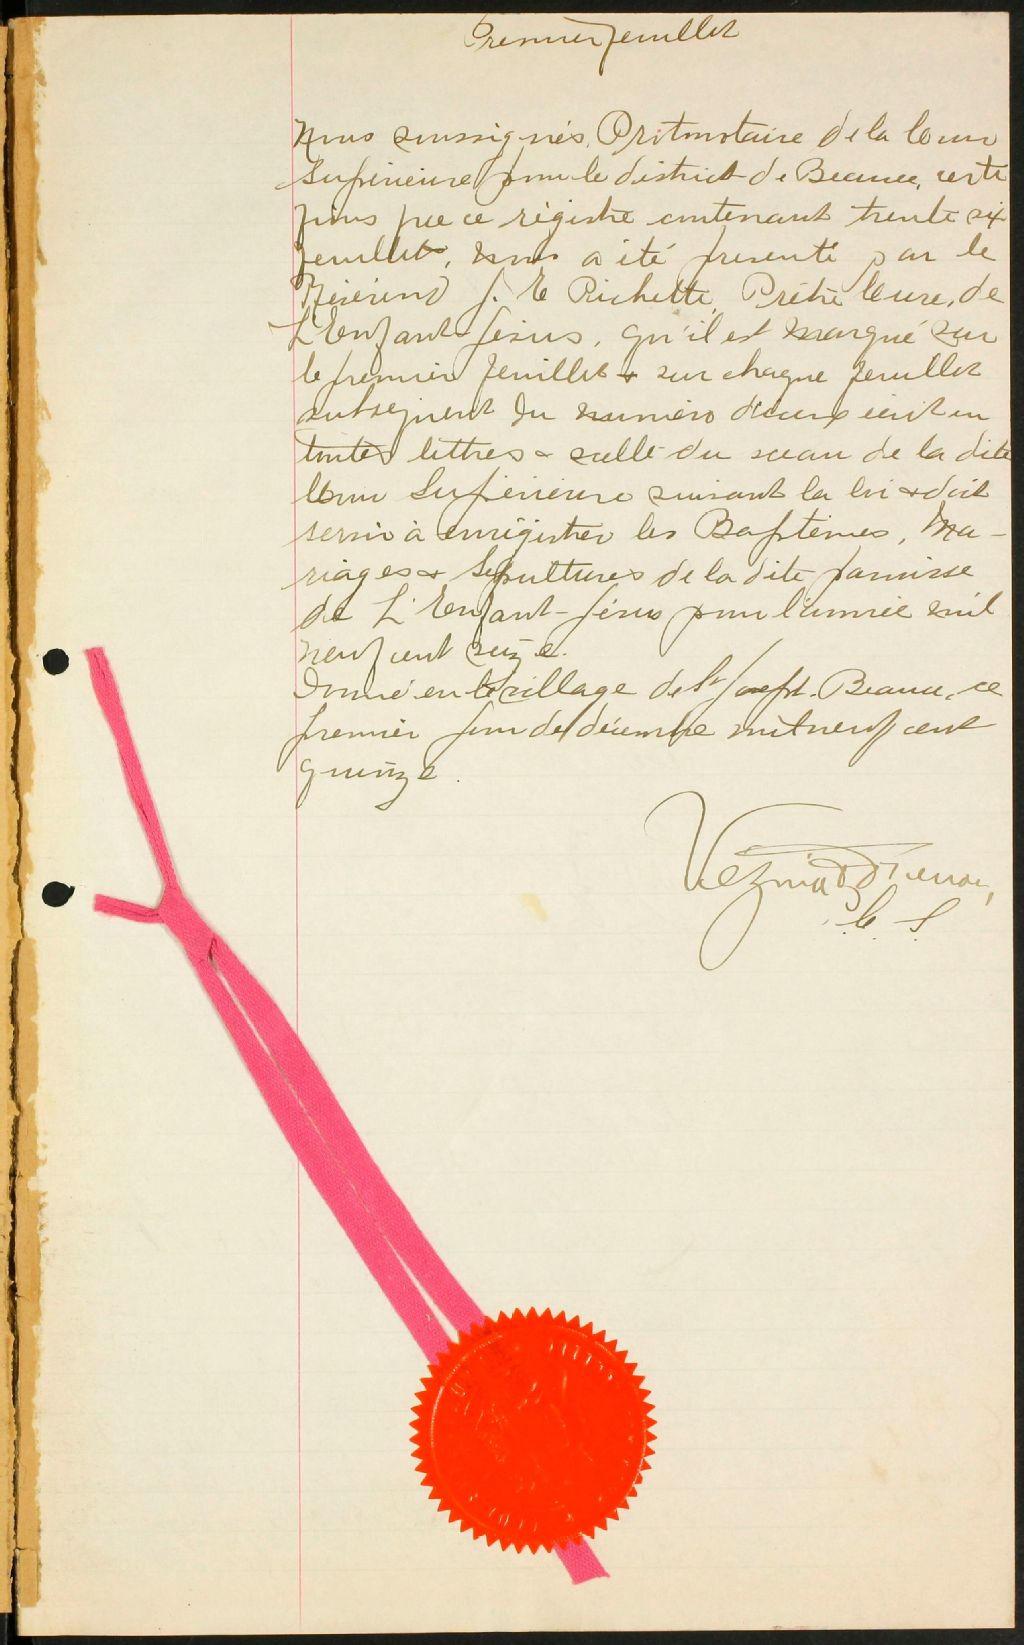 Premier feuillet
Nous soussignés, Protonotaire de la Cour
Supérieure pour le district de Beauce, certi
fions que ce régistre contenant trente six
feuillets, nous a été présenté par le
Révérend J. E Richette, Prêtre Curé, de
L'Enfant-Jésus, qu'il est marqué sur
le premier feuillet & sur chaque feuillet
subséquent du numéro d'iceux écrit en
toutes lettres & scellé du sceau de la dite
Cour Supérieure suivant la loi & doit
servir à enrégistrer les Baptêmes, Ma-
riages & Sépultures de la dite paroisse
de L'Enfant-Jésus pour l'année mil
neuf cent seize.
Donné en le village de St Joseph-Beauce, ce
premier jour de décembre mil neuf cent
quinze.
Vézina &
C. S.